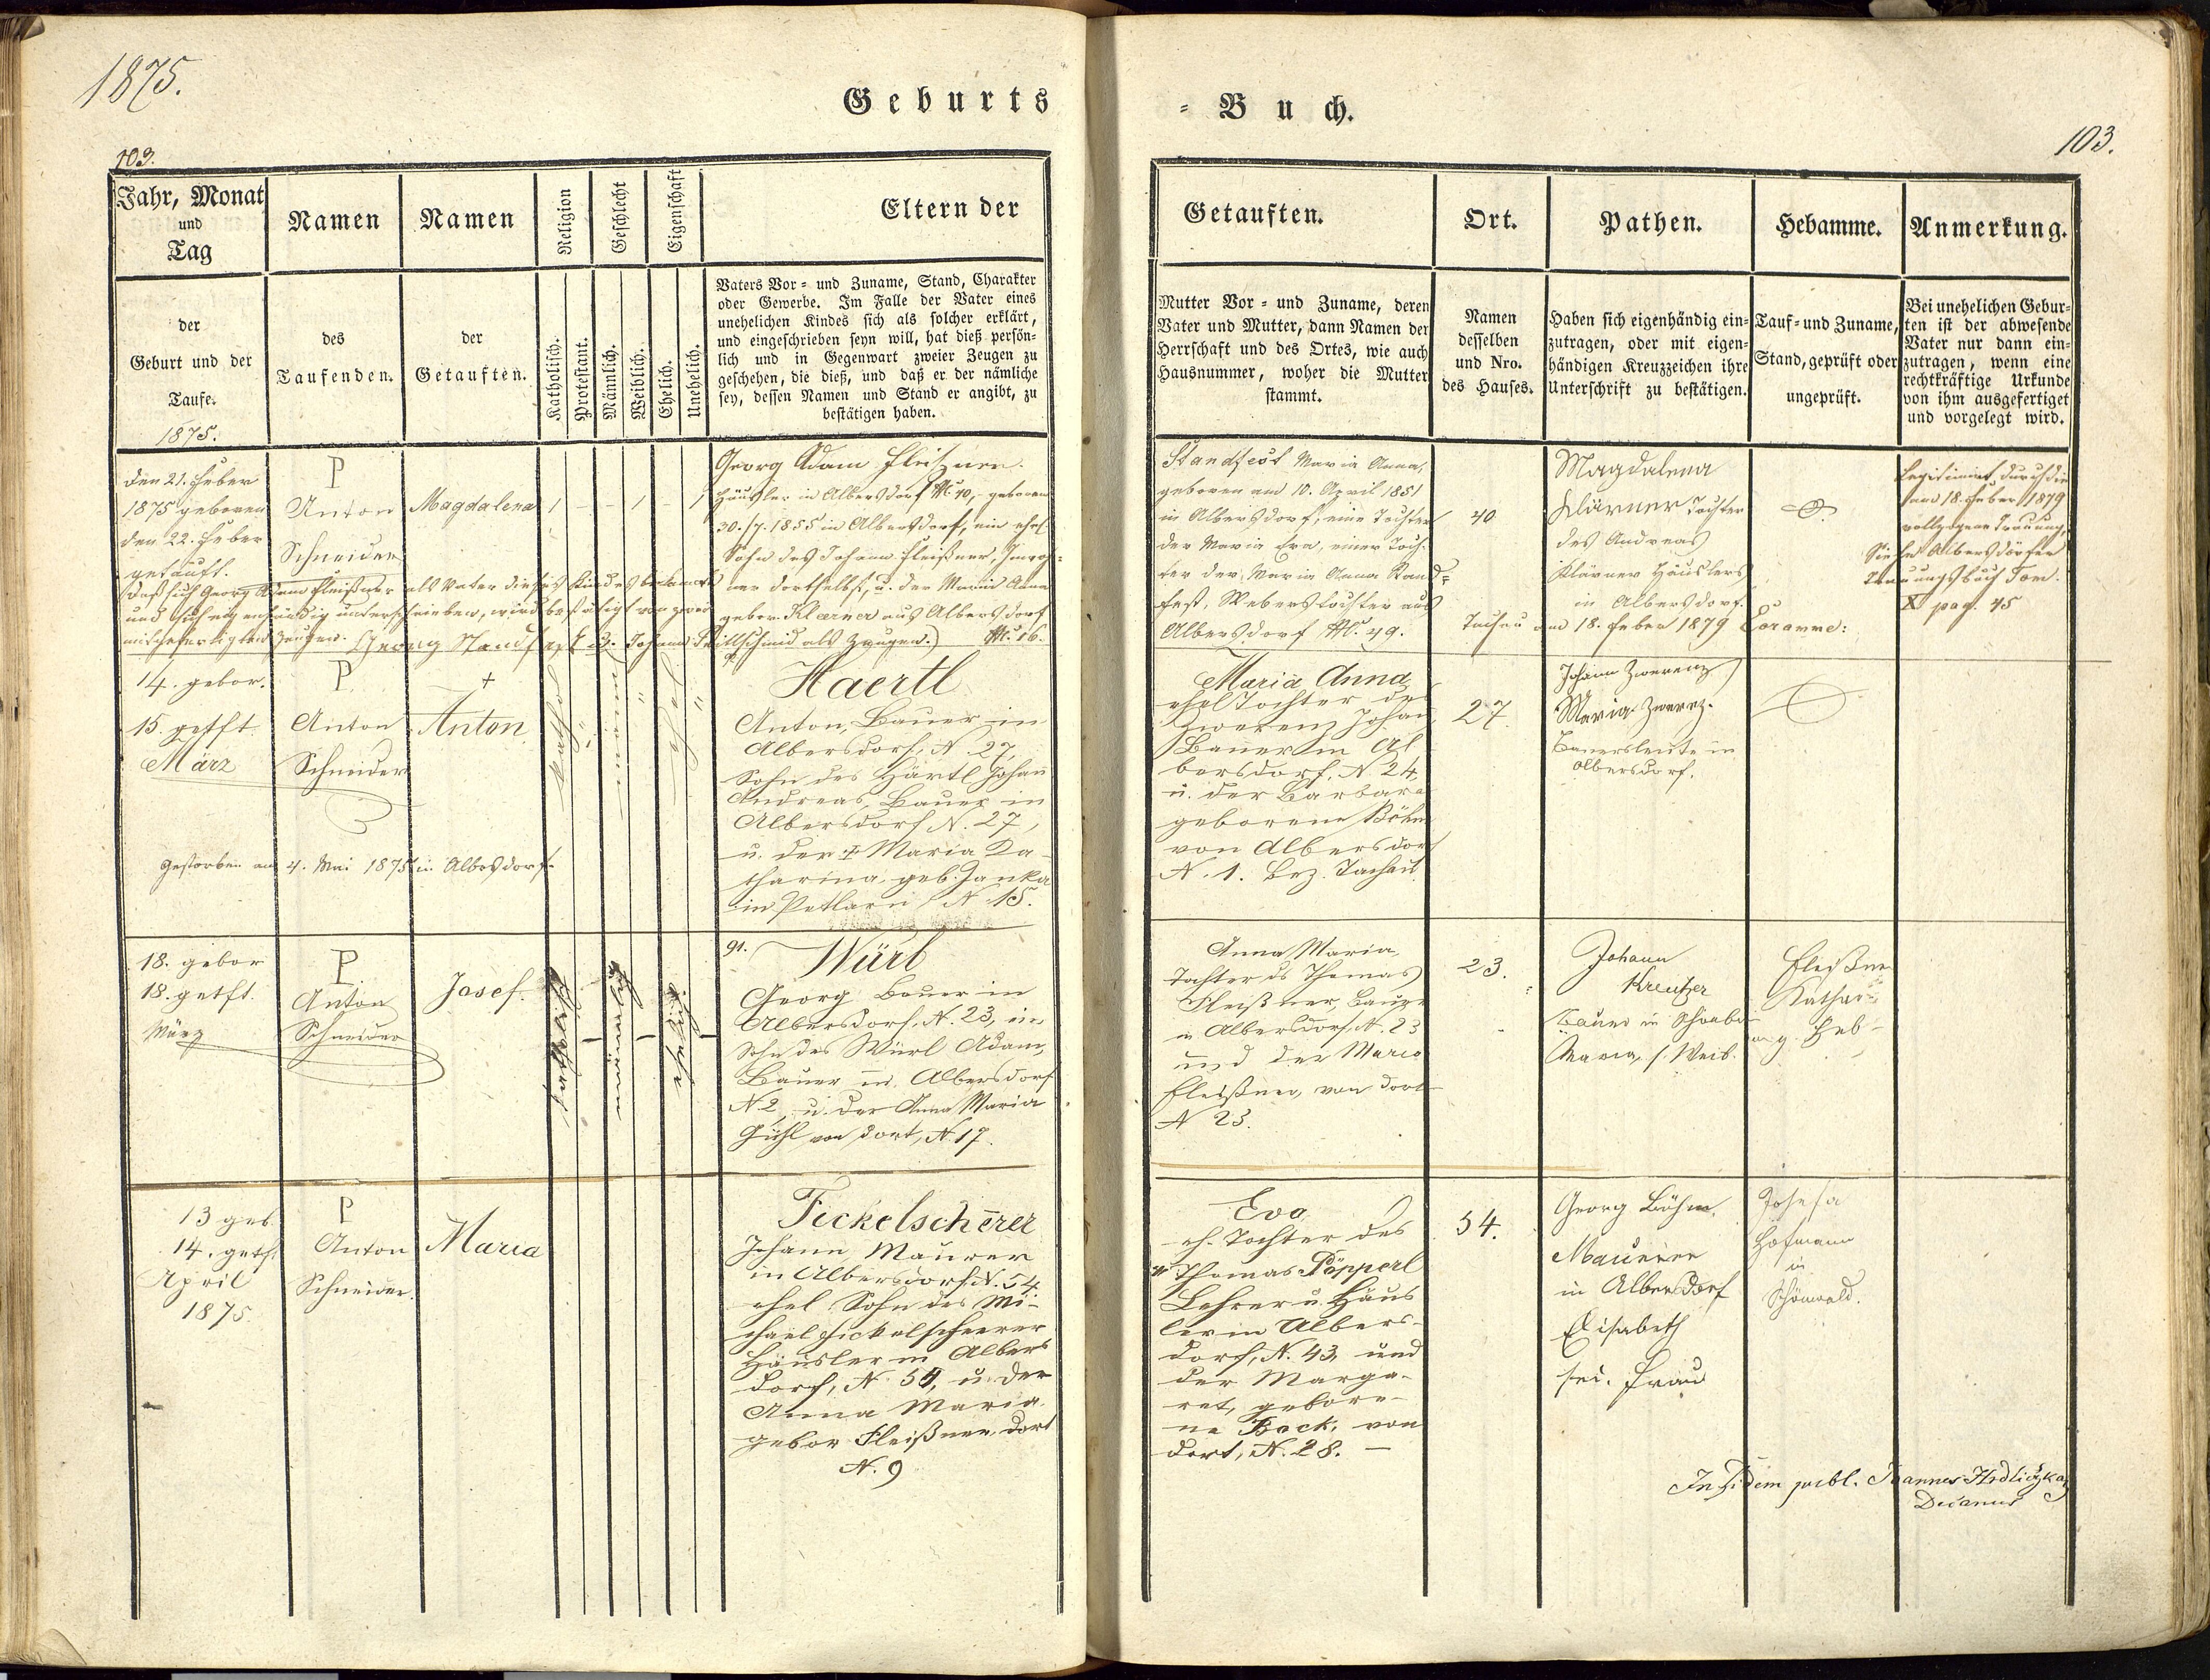 1875.
Geburts
103.
Jahr, Monat
und
Tag
der
Geburt und der
Taufe.
1875.
Namen
des
Taufenden.
Namen
der
Getauften.
Religion
Katholisch.
Protestant.
Geschlecht
Männlich.
Weiblich.
Eigenschaft
Ehelich.
Unehelich.
Eltern der
Vaters Vor- und Zuname, Stand, Charakter
oder Gewerbe. Im Falle der Vater eines
unehelichen Kindes sich als solcher erklärt,
und eingeschrieben seyn will, hat dieß persön-
lich und in Gegenwart zweier Zeugen zu
geschehen, die dieß, und daß er der nämliche
sey, dessen Namen und Stand er angibt, zu
bestätigen haben.
den 21. Feber
1875 geboren
den 22. Feber
getauft.
P
Anton
Schneider
Magdalena
1 - - 1 - 1
Georg Adam Fleißner
Häusler in Albersdorf Nr. 40, geboren
30./7. 1855 in Albersdorf, ein ehel.
Sohn des Johann Fleißner,
ner dortselbst, u. der Maria Anna
gebor. Klärner aus Albersdorf
Nr. 16.
Daß sich Georg Adam Fleißner als Vater dieses Kindes bekannt
und sich eigenhändig unterschrieben, wird bestätigt von zwei
mitgefertigten Zeugen. Georg Standfest u. Johann als Zeugen.
14. gebor.
15. getft.
März
P
Anton
Schneider
+
Anton
kathol
männl
ehel
Haertl
Anton, Bauer in
Albersdorf, N. 27,
Sohn des Härtl Johann
Andreas, Bauer in
Albersdorf N. 27,
u. der † Maria Ka-
tharina, geb. Janka
in Petlarn N. 15.
Gestorben am 4. Mai 1875 in Albersdorf
18. gebor
18. getft.
März
P.
Anton
Schneider
Josef.
katholisch
männlich
ehelich
91.
Würl
Georg Bauer in
Albersdorf, N. 23, ein
Sohn des Würl Adam,
Bauer in Albersdorf
N 2, u. der Anna Maria
von dort, N. 17.
13 geb.
14. getft.
April
1875.
P
Anton
Schneider.
Maria
Fickelscherer
Johann Maurer
in Albersdorf N. 54
ehel. Sohn des Mi-
chael Fickelscheerer
Häusler in Albers
dorf, N. 54, u. der
Anna Maria
gebor Fleißner, dort
N. 9
= Buch.
103.
Getauften.
Mutter Vor- und Zuname, deren
Vater und Mutter, dann Namen der
Herrschaft und des Ortes, wie auch
Hausnummer, woher die Mutter
stammt.
Ort.
Namen
desselben
und Nro.
des Hauses.
Pathen.
Haben sich eigenhändig ein-
zutragen, oder mit eigen-
händigen Kreuzzeichen ihre
Unterschrift zu bestätigen.
Hebamme.
Tauf- und Zuname,
Stand, geprüft oder
ungeprüft.
Anmerkung.
Bei unehelichen Gebur-
ten ist der abwesende
Vater nur dann ein-
zutragen, wenn eine
rechtkräftige Urkunde
von ihm ausgefertiget
und vorgelegt wird.
Standfest Maria Anna,
geboren am 10. April 1851
in Albersdorf, eine Tochter
der Maria Eva, einer Toch-
ter der Maria Anna Stand-
fest, Weberstochter aus
Albersdorf Nr. 49.
40
Magdalena
Klärner Tochter
des Andreas
Klärner Häuslers
in Albersdorf.
Tachau am 18. Feber 1879 Coram me:
Legitimirt durch die
am 18. Feber 1879
vollzogene Trauung,
Siehe Albersdorfer
Trauungsbuch Tom.
X pag. 45
Maria Anna
ehel Tochter des
Zwerenz Johann
Bauer in Al
bersdorf, N 24,
u. der Barbara
geborene Böhm
von Albersdorf
N. 1. Bez. Tachau.
27.
Johann Zwerenz
Maria Zwerenz.
Bauersleute in
Albersdorf.
Anna Maria
Tochter ds Thomas
Fleißner, Bauer
in Albersdorf, N. 23
und der Maria
Fleißner, von dort
N 23.
23.
Johann
Kreutzer
Bauer in
Maria, s. Weib.
Fleißner
Kathar-
g. Heb-
Eva
eh. Tochter des
Thomas Pöpperl
Lehrer u. Häus
ler in Albers-
dorf, N. 43, und
der Marga-
ret, gebore-
ne Bock, von
dort, N. 28. —
54.
Georg Böhm,
Maurer
in Albersdorf
Elisabeth
sei. Frau
Josefa
Hofmann
in
Schönwald.
In fidem publ. Joannes Hrdliczka
Decanus